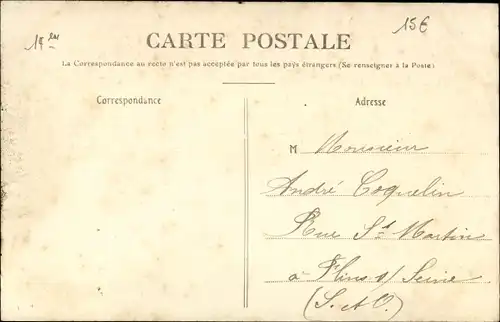 15€
CARTE POSTALE
La Correspondance au recto n'est pas acceptée par tous les pays étrangers (Se renseigner à la Poste)
Correspondance
Adresse
M Monsieur
André Coquelin
Rue St Martin
à Flins s/ Seine
(S. et O.)